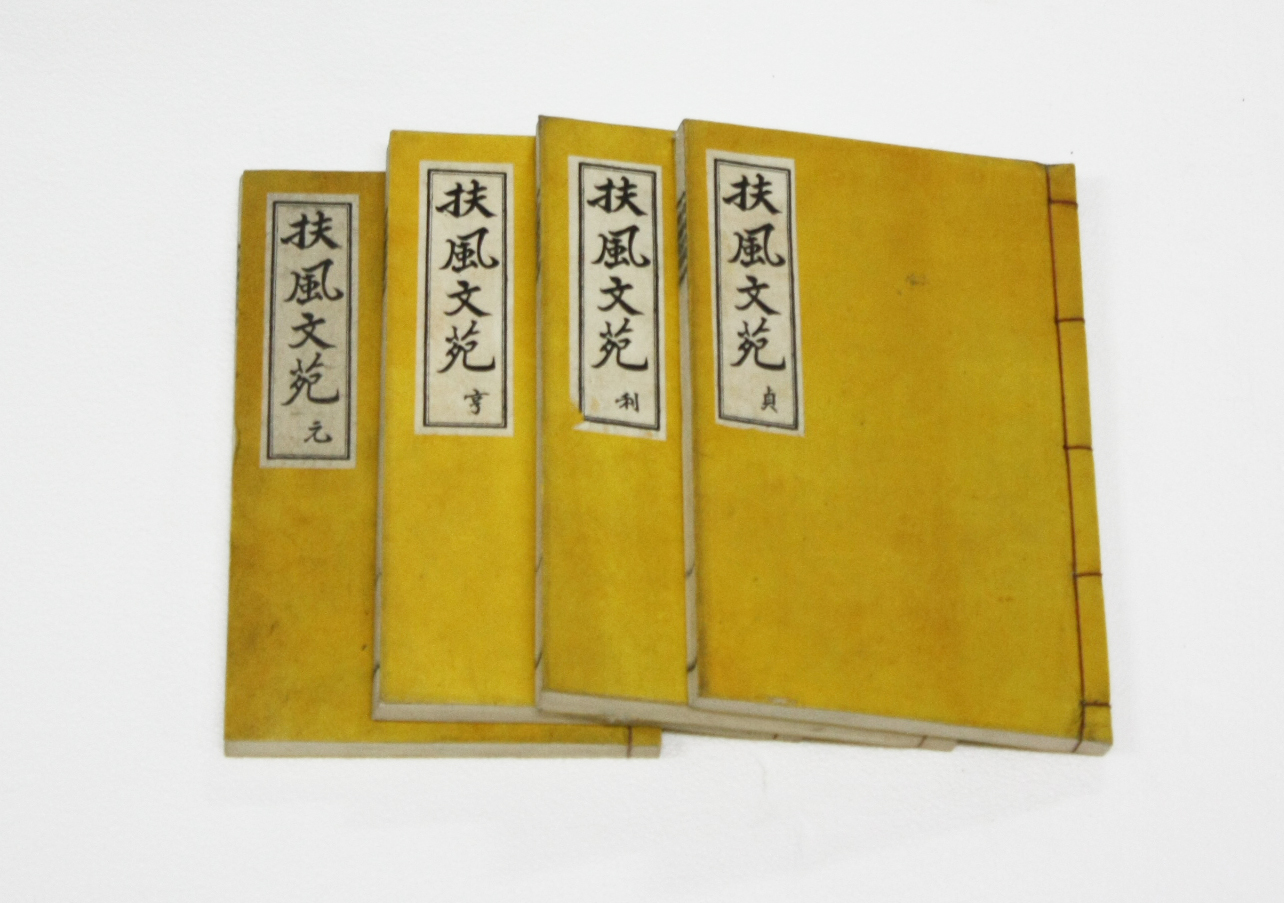 扶風文苑 元
扶風文苑 亨
扶風文苑 利
扶風文苑 貞